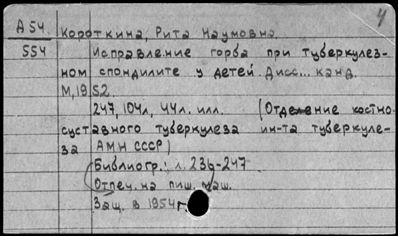 А 54 Короткина, Рита Наумовна
554 Исправление горба при туберкулез-
ном спондилите у детей. Дисс... канд.
М, 1952.
247, 104л, 44л. илл. (Отделение костно-
суставного туберкулеза ин-та туберкуле-
за АМН СССР)
Библиогр.: л. 236-247
Отпеч. на пиш. маш.
Защ. в 1954г.